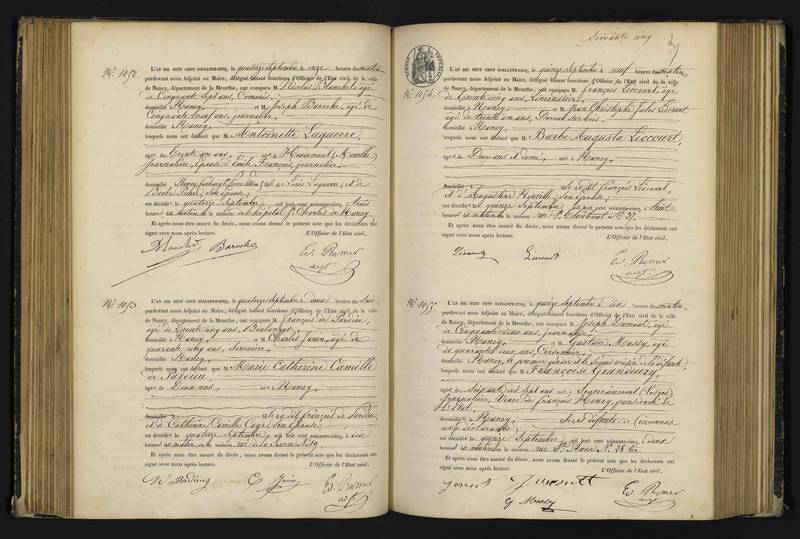 N°. 1052.
L'AN MIL HUIT CENT SOIXANTE-CINQ, le quatorze Septembre à onze heures du matin,
pardevant nous Adjoint au Maire, délégué faisant fonctions d'Officier de l'Etat civil de la ville
de Nancy, département de la Meurthe, ont comparu M. Nicolas Blanchet, âgé
de Cinquante Sept ans, Commis,
domicilié à Nancy, et M. Joseph Baroche, âgé de
Cinquante neuf ans, journalier,
domicilié à Nancy,
lesquels nous ont déclaré que M. Antoinette Laguerre,
âgée de Trente un ans, née à (Meurthe)
journalière, épouse d'Emile François, journalier,
domiciliée à Nancy, de Louis Laguerre, et de
Barbe son épouse,
est décédée le quatorze Septembre mil huit cent soixante-cinq, à trois
heures du matin en la maison de l'hôpital St. Charles de Nancy
Et après nous être assuré du décès, nous avons dressé le présent acte que les déclarants ont
signé avec nous après lecture.
L'Officier de l'Etat civil,
Blanchet Baroche
Ed. Rymer
adjt.
N°. 1053.
L'AN MIL HUIT CENT SOIXANTE-CINQ, le quatorze Septembre à deux heures du Soir,
pardevant nous Adjoint au Maire, délégué faisant fonctions d'Officier de l'Etat civil de la ville
de Nancy, département de la Meurthe, ont comparu M. François de Sardin,
âgé de Trente cinq ans, Boulanger,
domicilié à Nancy, et M. Charles Janin, âgé de
quarante cinq ans, Serrurier,
domicilié à Nancy,
lesquels nous ont déclaré que M. Marie Catherine Camille
de Sardin,
âgée de Deux ans, née à Nancy,
domicilié à fille du dit François de Sardin
et de Catherine Camille son épouse,
est décédée le quatorze Septembre mil huit cent soixante-cinq, à dix
heures du matin en la maison rue
Et après nous être assuré du décès, nous avons dressé le présent acte que les déclarants ont
signé avec nous après lecture.
L'Officier de l'Etat civil,
C. Janin
Ed. Rymer
adjt.
Soixante cinq
N°. 1054.
L'AN MIL HUIT CENT SOIXANTE-CINQ, le quinze Septembre à neuf heures du matin,
pardevant nous Adjoint au Maire, délégué faisant fonctions d'Officier de l'Etat civil de la ville
de Nancy, département de la Meurthe, ont comparu M. François Liocourt, âgé
de Trente cinq ans, Limonadier,
domicilié à Nancy, et M. Jean Christophe Jules Liocourt
âgé de trente un ans,
domicilié à Nancy,
lesquels nous ont déclaré que M. Barbe Augusta Liocourt,
âgée de Deux ans et demi, née à Nancy,
domicilié à fille du dit François Liocourt,
et d'Augustine son épouse,
est décédée le quinze Septembre mil huit cent soixante-cinq, à huit
heures du matin en la maison rue St. Thiébaut N°. 37.
Et après nous être assuré du décès, nous avons dressé le présent acte que les déclarants ont
signé avec nous après lecture.
L'Officier de l'Etat civil,
Liocourt Liocourt
Ed. Rymer
adjt.
N°. 1055.
L'AN MIL HUIT CENT SOIXANTE-CINQ, le quinze Septembre à dix heures du matin,
pardevant nous Adjoint au Maire, délégué faisant fonctions d'Officier de l'Etat civil de la ville
de Nancy, département de la Meurthe, ont comparu M. Joseph âgé
de Cinquante deux ans, journalier,
domicilié à Nancy, et M. Gustave Massy, âgé
de quarante deux ans, Cordonnier,
domicilié à Nancy, le premier gendre et le second voisin de la défunte,
lesquels nous ont déclaré que M. Françoise Granduery,
âgée de Soixante dix sept ans née à (Vosges)
journalière, Veuve de François Henry, pensionné de
l'Etat,
domiciliée à Nancy, fille de défunts et inconnus
aux déclarants,
est décédée le quinze Septembre mil huit cent soixante-cinq, à deux
heures du matin en la maison rue Ste. Anne N°. 28 bis
Et après nous être assuré du décès, nous avons dressé le présent acte que les déclarants ont
signé avec nous après lecture.
L'Officier de l'Etat civil,
G. Massy
Ed. Rymer
adjt.